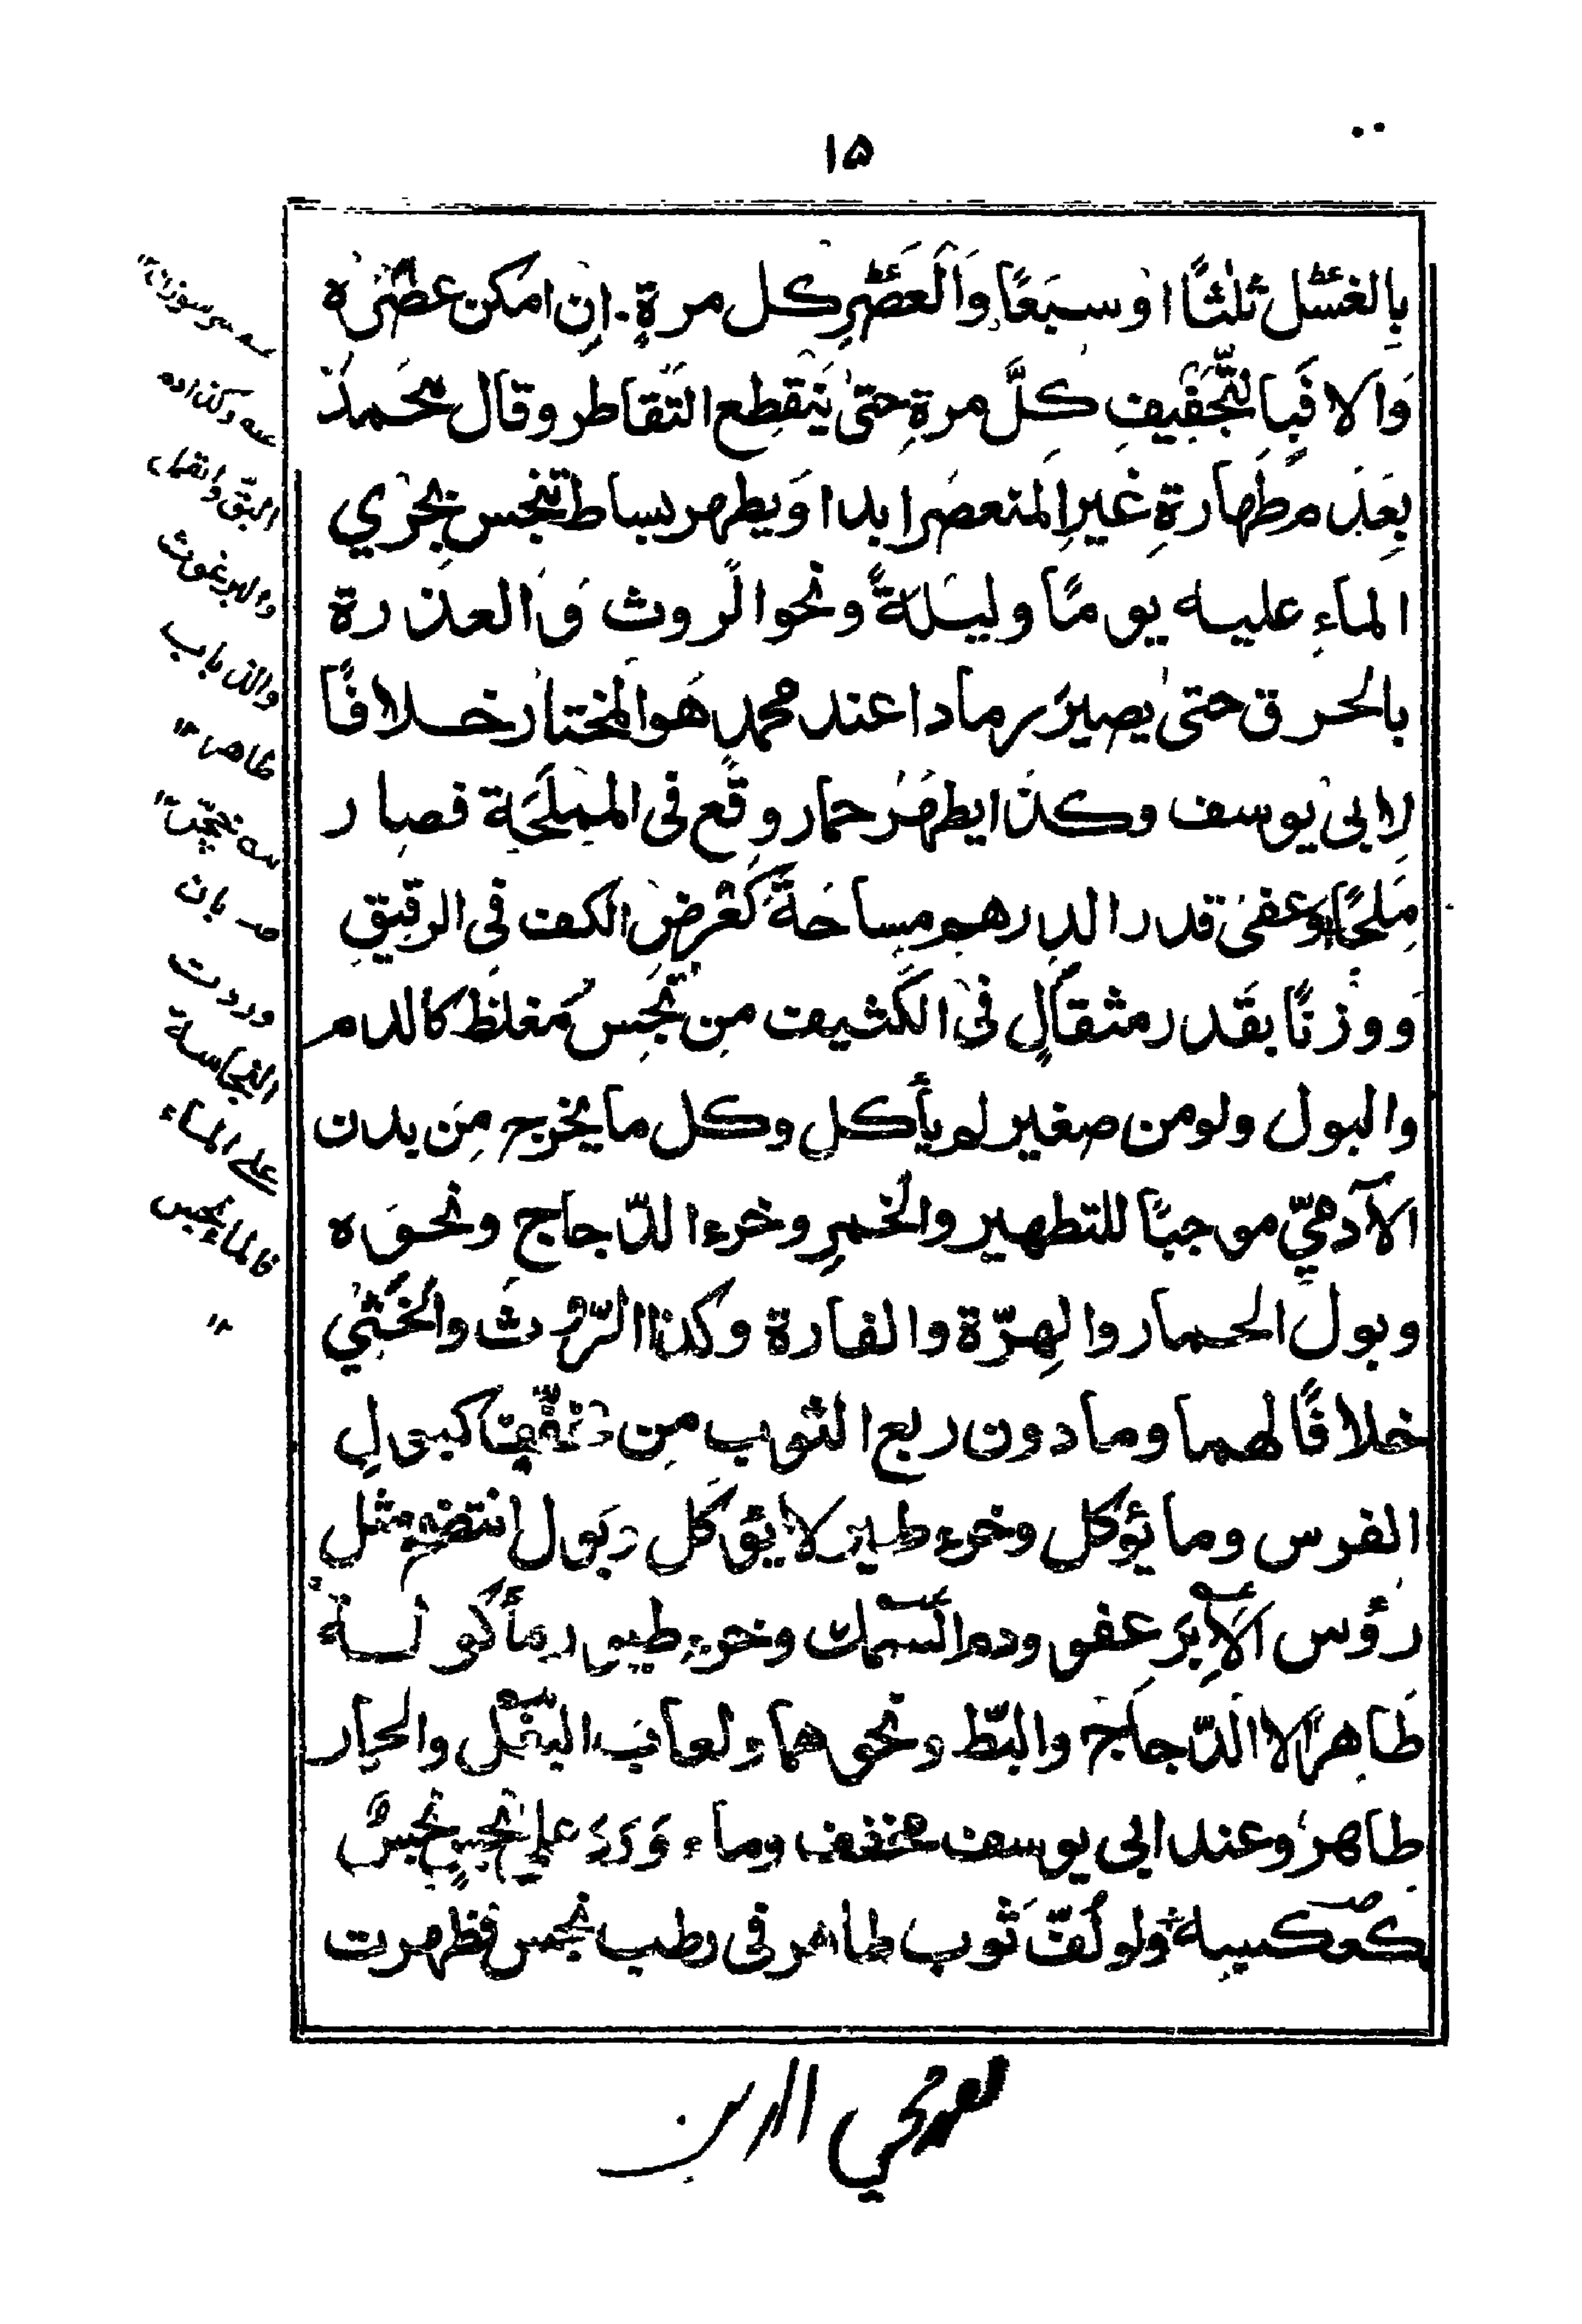 ١٥
بِالغَسْل ثلٰثًا اوْ سبَعًا وَالَعَصْرِ كل مرةٍ. اِنْ امكن عصْرُه
وَالا فَبِا لتَّجفِيفِ كلَّ مرةٍ حتىٰ يَنقطِع التقاطر وقال محَمدٌ
بِعَدَ م طَهارةِ غيرِ المنعصَر ابدا وَيطهر بساط تنجس بجرْي
الماءِ عليه يو مًا وليَلةً ونحو الرو ث وَالعذ رة
بالحرق حتىٰ يصيرَ رمادا عند محمدٍ هَوالمختار خلافًا
لِابى يوسف وكذا يطهَرُ حمار وقَع فى المِملَحَة فصا ر
مِلحًا وعفىٰ قدر الدِرهم مِساحَةً كعَرضِ الكف فى الرقيقِ
وَوزنًا بقَدر مثقالٍ فى الكَثيف مِن نجِسٍ مُغلظ كالدم
والبول ولو من صغير لم يأكل وكل ما يخرج مِن بدن
الآدميّ موجبًا للتطهير والخمرِ وخرء الدّجاج ونحوَه
وبول الحمار والهِرّة والفارة وكذا الرّوثَ والخثي
خلافًا لهما وما دون ربع الثوب مِن كبولِ
الفرس وما يؤكل وخرء طير لا يؤكَل وبَول انتضح مثل
رؤس الاِبَرِ عفو ودم السَّمك وخرء طيور مأكولة
طَاهِر الا الدّجاج والبَطّ ونحوهما ولعابُ البَغْل والحمار
طاهرٌ وعند ابى يوسف مخفف وماء وَرَدَ علىٰ نجسٍ نجسٌ
كعكسه ولو لُفّ ثوب طاهر فى رطب نجس فظهرت
سوزن ١٢
وكذا دم
البقّ والقمل
والبرغوث
والذباب
طاهر ١٢
بان
وردت
النجاسة
على الماء
فالماء نجس
١٢
محي الدين